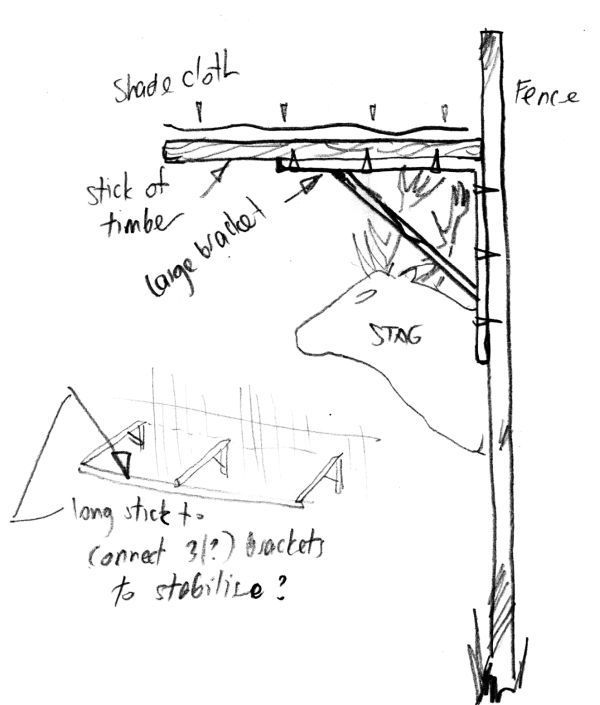 Shade cloth
Fence
stick of
timber
large bracket
STAG
long stick to
connect 3(?) brackets
to stabilize?